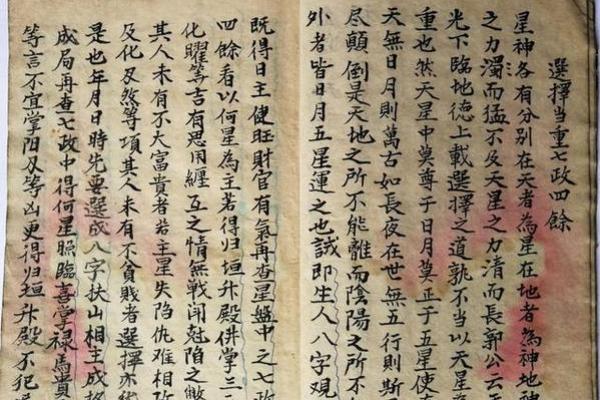 選擇當重七政四餘
星神各有分别在天者為星在地者為神地神
之力濁而猛不及天星之力清而長郭公云
光下臨地德上載選擇之道孰不当以天星
重也然天星中莫尊于日月莫正于五星使
天無日月則萬古如長夜在世無五行則斯
尽顛倒是天地之所不能離而陰陽之所不
外者皆日月五星運之也誠即生人八字观
既得日主健旺財官有氣再查星盤中之七政
四餘看以何星為主若得归垣升殿併掌三
化曜等吉有恩用纏互之情無戦闲尅陷之
其人未有不大富貴者若主星失陷仇难相
及化及煞等項其人未有不貧賤者選擇亦
是也年月日時先要選成八字扶山相主成格
成局再查七政中得何星照臨喜掌禄馬貴
等言不宜掌阳及等凶更得归垣升殿不犯